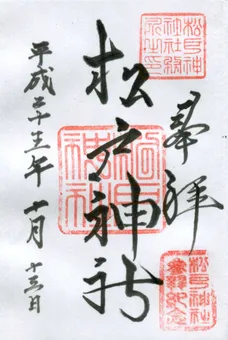 松戸神
社社務
所之印
奉拝
松戸神社
参拝紀念
松戸神社
松戸
神社
平成二十五年十月十三日